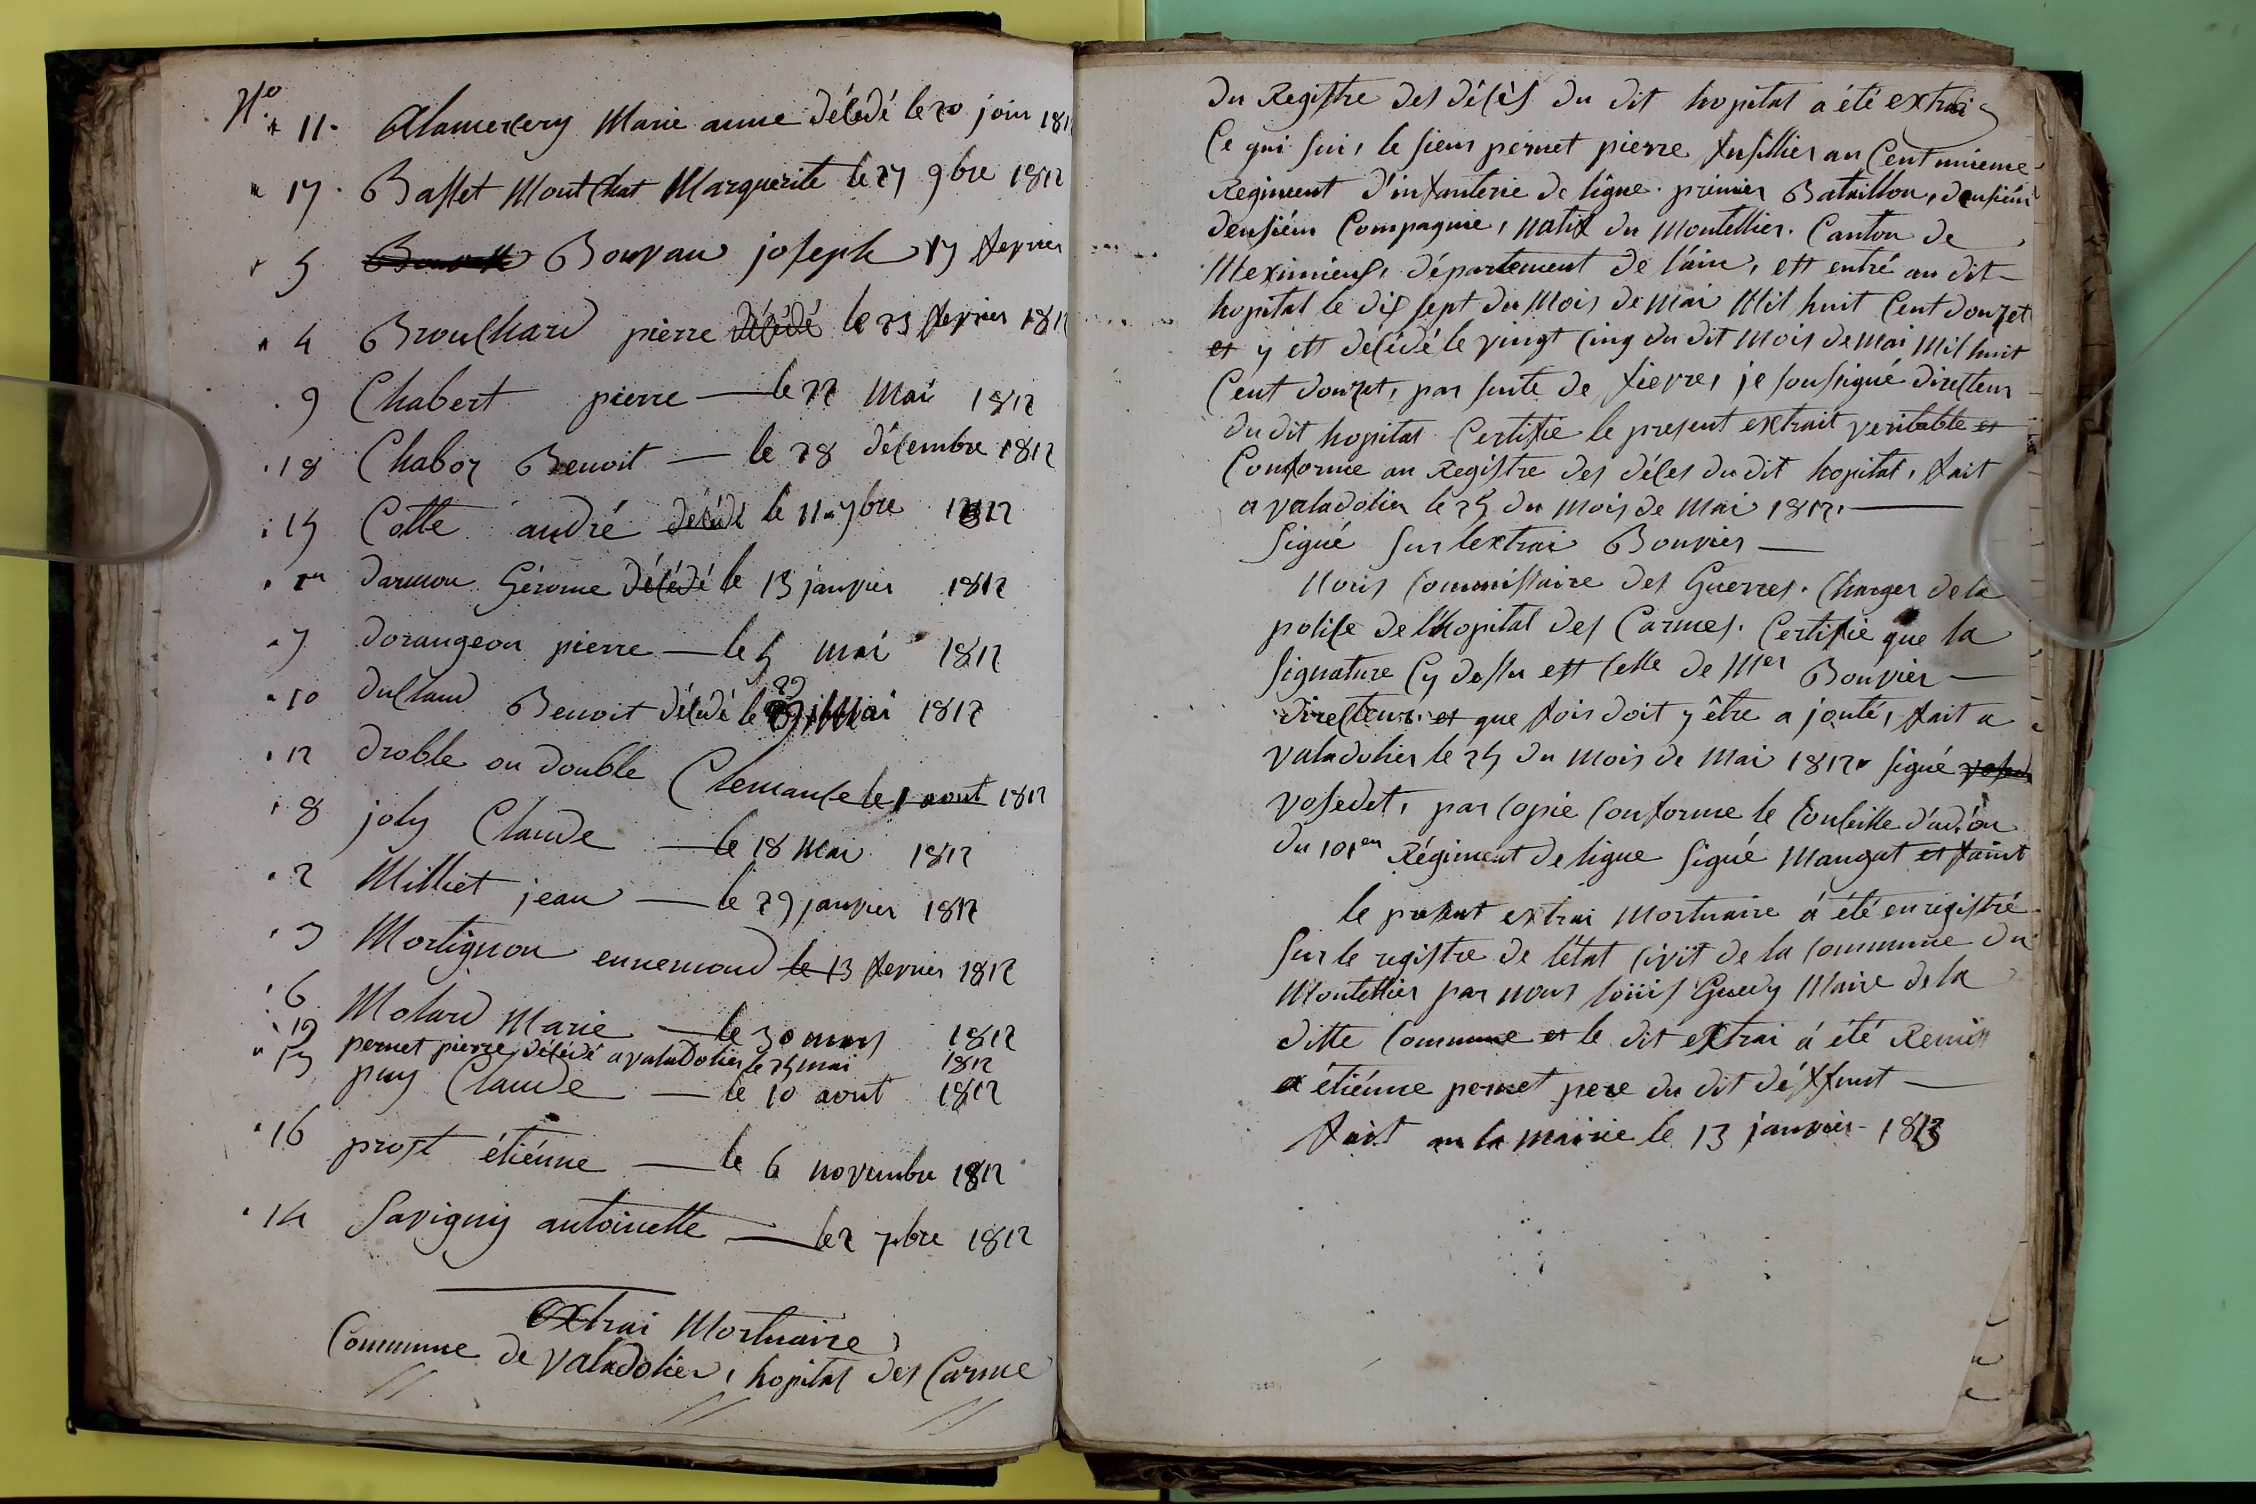 No
11. Alamercery Marie anne décédé le 20 join 181
17. Basset Montchat Marguerite le 27 9bre 1812
5 Bouvau joseph 17 fevrier
4 Brouchard pierre décédé le 23 fevrier 181
9 Chabert pierre — le 22 Mai 1812
18 Chaboz Benoit — le 28 décembre 1812
15 Cotte andré décédé le 11 7bre 1812
1er darmon Gérome décédé le 13 janvier 1812
7 dorangeon pierre — le 5 mai 1812
10 duclaud Benoit décédé le 29 Mai 1812
12 droble ou double Clemanse le 1 aout 1812
8 joly Claude — le 18 Mai 1812
2 Milliet jean — le 29 janvier 1812
3 Mortignon ennemond le 13 fevrier 1812
6 Molard Marie — le 30 mars 1812
19 pernet pierre décédé a valadolier le 25 mai 1812
13 puy Claude — le 10 aout 1812
16 prost étiénne — le 6 novembre 1812
14 Savigny antoinette — le 2 7bre 1812
extrai Mortuaire
Commune de valadolier, hopital des Carme
du Registre des décès du dit hopital a été extrai
Ce qui suit, le sieur pernet pierre fusillier au Cent unieme
Regiment d'infanterie de ligne. primier Bataillon, deusiém
deusiém Compagnie, natif du Montellier. Canton de
Meximieux, département de l'ain, est entré au dit
hopital le dix sept du Mois de Mai Mil huit Cent douzet
et y est décédé le vingt cinq du dit Mois de Mai Mil huit
Cent douzet, par suite de fievre, je soussigné directeur
du dit hopital Certifie le present extrait veritable et
Conforme au Registre des déces du dit hopital, fait
a valadolier le 25 du Mois de Mai 1812. —
Signé sur lextrai Bouvier —
Nous Commissaire des Guerres. Charger de la
police de l'hopital des Carmes. Certifie que la
Signature Cy dessu est celle de Mer Bouvier —
directeur et que fois doit y être a jouté, fait a
valadolier le 25 du Mois de Mai 1812 signé
vosedet, par copie Conforme le Conseille d'ad.on
du 101em Régiment de ligne signé Maugat
le present extrai Mortuaire á été enregistré
Sur le registre de l'état civit de la commune du
Montellier par nous loüis Guedy Maire de la
ditte Commune et le dit extrai á été Remis
a étiénne pernet pere du dit déffunt —
fait a la mairie le 13 janvier 1813